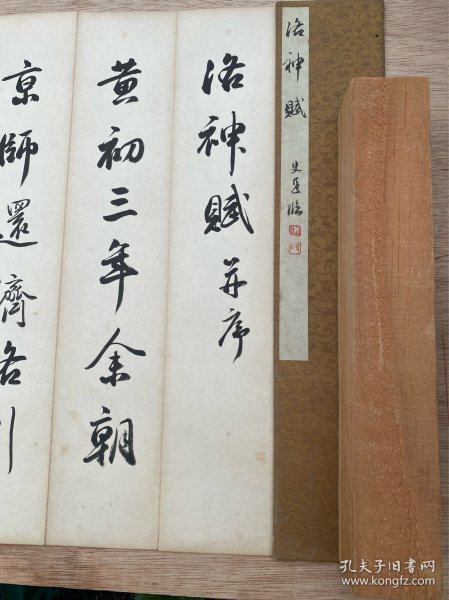 洛神賦
洛神賦并序
黄初三年余朝
京師還濟洛川
孔夫子旧书网
www.kongfz.com